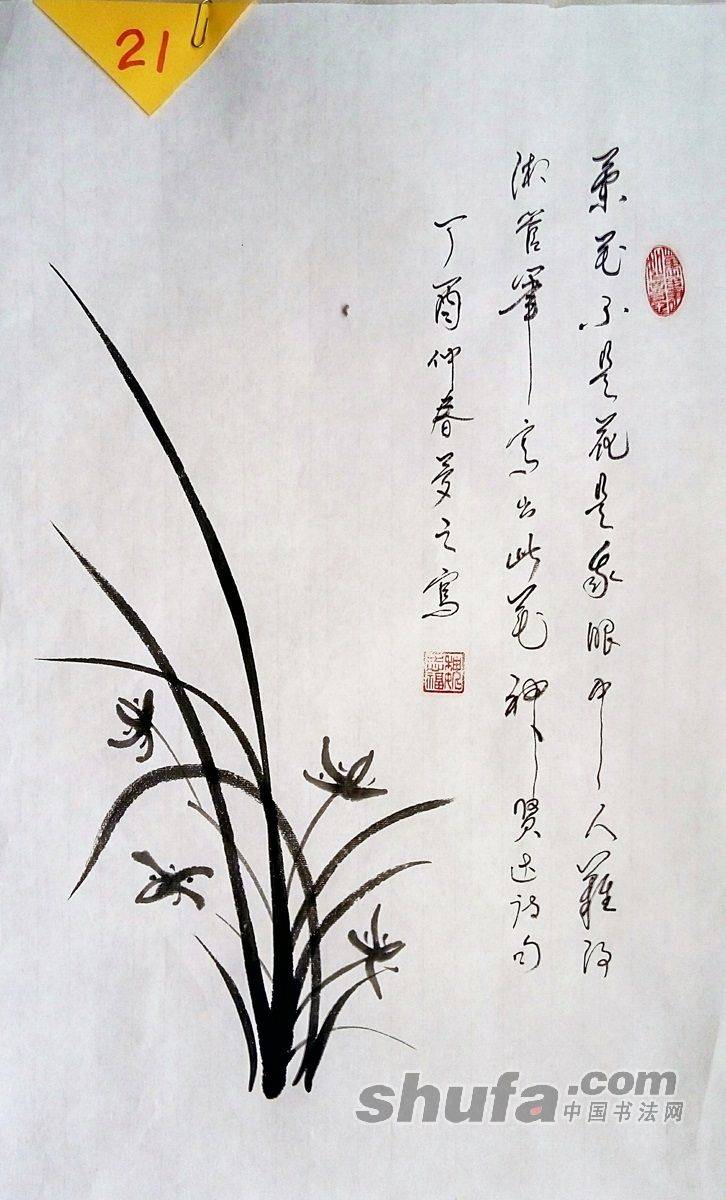 21
蘭花不是花是我眼中人難將
湘管筆寫出此花神贤达诗句
丁酉仲春夢之寫
shufa.com
中国书法网